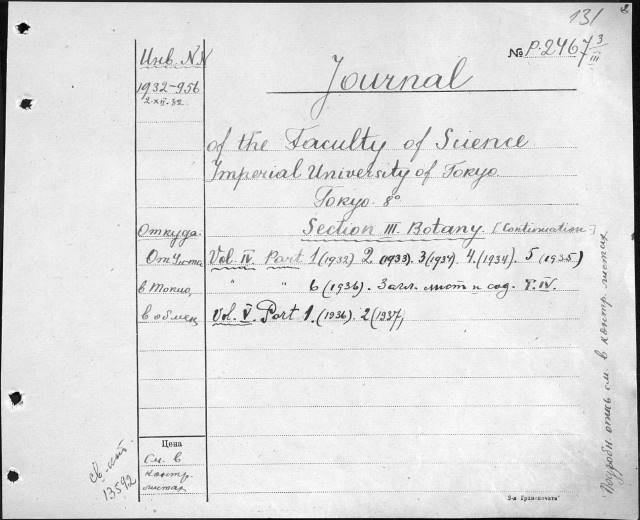 131
Инв. NN
№ P.2467 3/III
1932-956
2.XII.32
Journal
of the Faculty of Science
Imperial University of Tokyo
Tokyo 8°
Откуда
Section III. Botany. [Continuation]
От Ун-та
Vol. IV. Part 1 (1932) 2. (1933). 3 (1934). 4. (1934). 5 (1935)
в Токио,
" " 6 (1936). Загл. лист и сод. T. IV.
в обмен
Vol. V. Part 1. (1936). 2 (1937,
Цена
См. в
контр.
листах
13592
см. в контр. листах